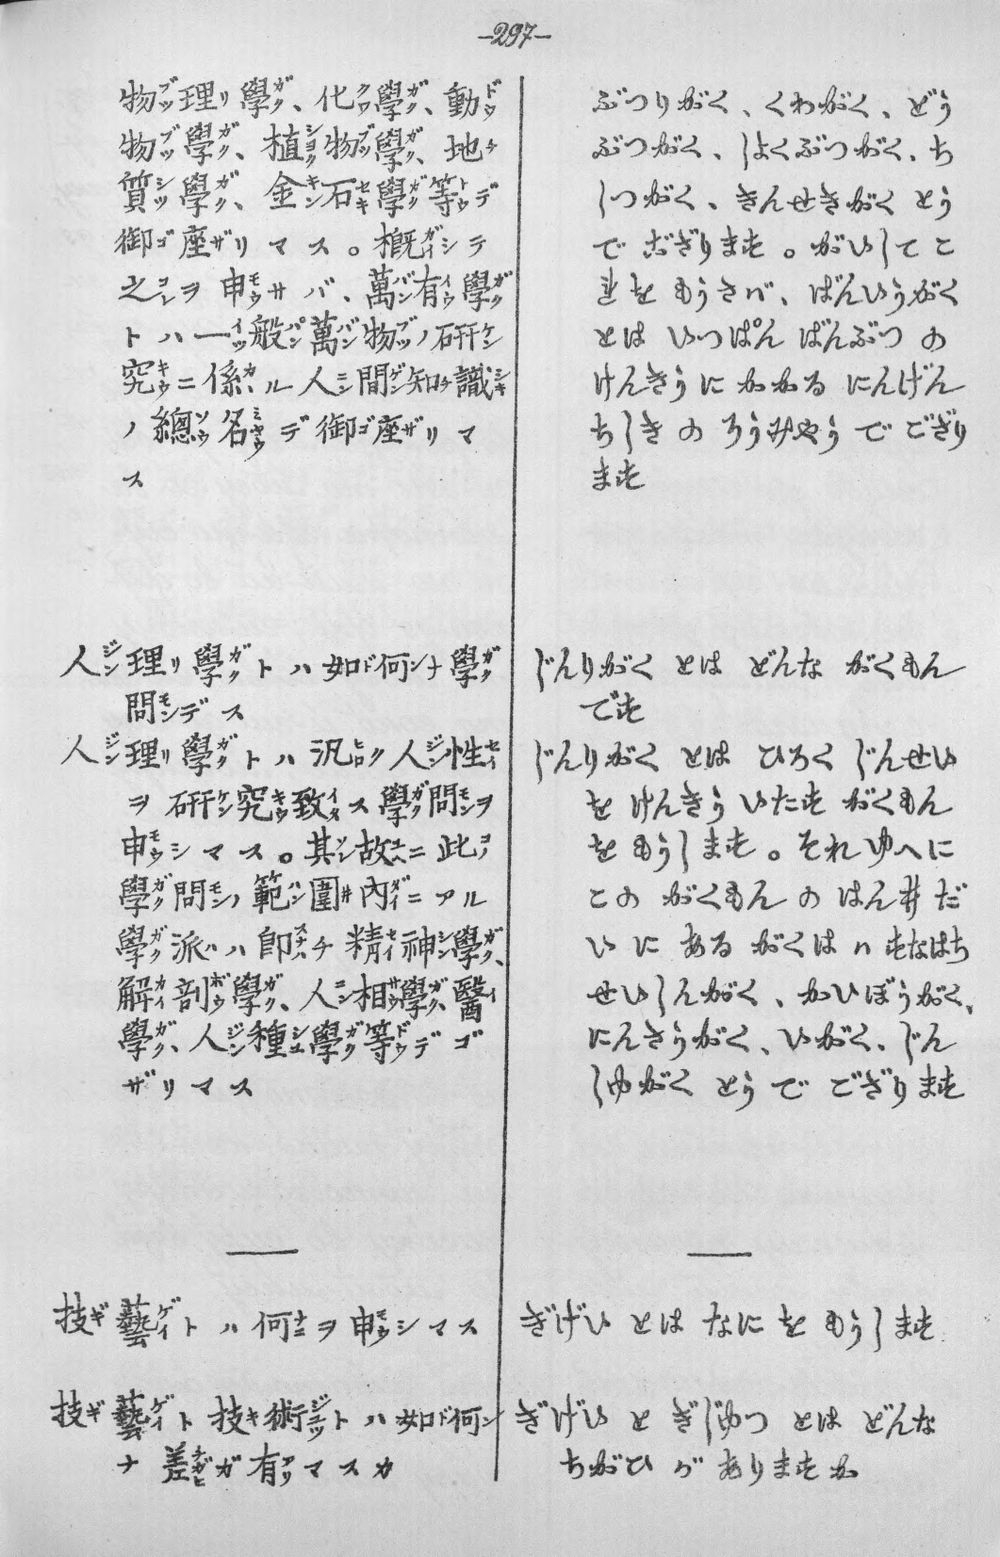 -297-
物理學、化學、動
物學、植物學、地
質學、金石學等デ
御座リマス。概シテ
之ヲ申サバ、萬有學
トハ一般萬物ノ研
究ニ係ル人間知識
ノ總名デ御座リマ
ス
人理學トハ如何ナ學
問デス
人理學トハ汎ク人性
ヲ研究致ス學問ヲ
申シマス。其故ニ此
學問ノ範圍內ニアル
學派ハ即チ精神學、
解剖學、人相學、醫
學、人種學等デゴ
ザリマス
技藝トハ何ヲ申シマス
技藝ト技術トハ如何
ナ差ガ有マスカ
ぶつりがく、くわがく、どう
ぶつがく、しよくぶつがく、ち
しつがく、きんせきがく とう
で ござります。がいして こ
れを もうさバ、ばんいうがく
とは いつぱん ばんぶつ の
けんきうに かかる にんげん
ちしき の そうみやう で ござり
ます
じんりがく とは どんな がくもん
です
じんりがく とは ひろく じんせい
を けんきう いたす がくもん
を もうします。それ ゆへに
この がくもん の はん井 だ
い に ある がくは ハ すなはち
せいしんがく、かひぼうがく、
にんさうがく、いがく、じん
しゆがく とう で ござります
ぎげい とは なに を もうします
ぎげい と ぎじゆつ とは どんな
ちがひ が ありますか